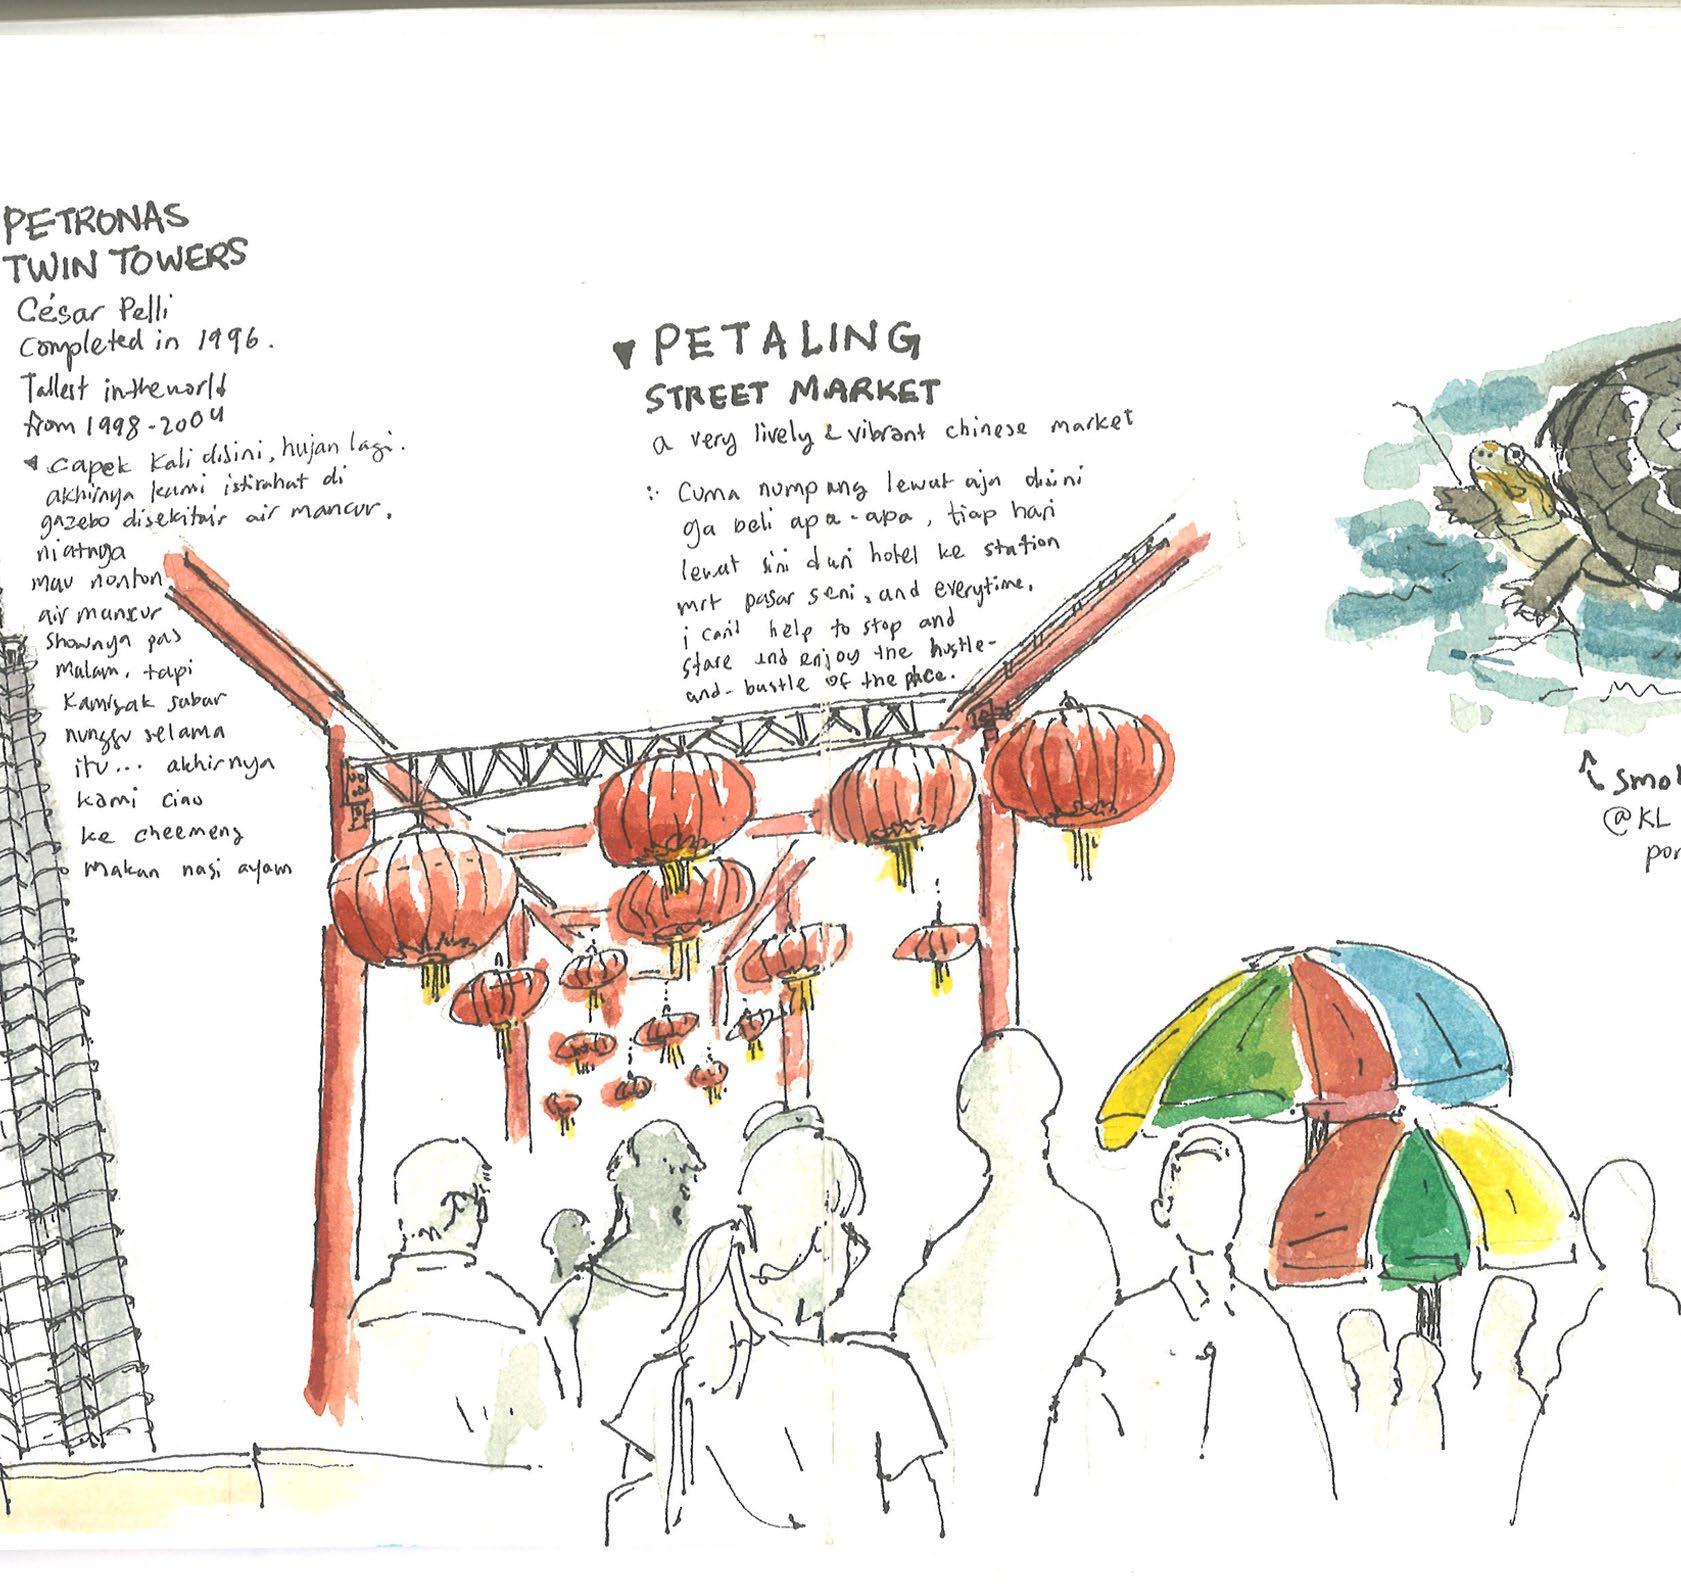 PETRONAS
TWIN TOWERS
César Pelli
Completed in 1996.
Tallest in the world
from 1998-2004
capek kali disini, hujan lagi.
akhirnya kami istirahat di
gazebo disekitair air mancur.
niatnya
mau nonton
air mancur
shownya pas
malam. tapi
kamigak sabar
nunggu selama
itu... akhirnya
kami ciao
ke cheemeng
makan nasi ayam
PETALING
STREET MARKET
a very lively & vibrant chinese market
Cuma numpang lewat aja disini
ga beli apa-apa, tiap hari
lewat sini dari hotel ke station
mrt pasar seni, and everytime,
i can't help to stop and
stare and enjoy the hustle-
and-bustle of the place.
@KL